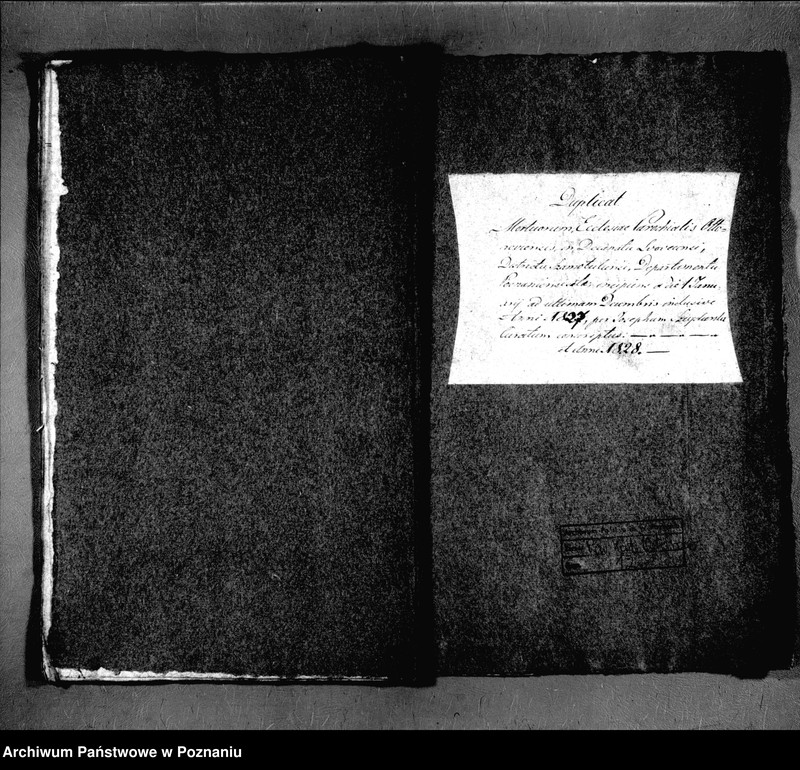 Duplicat
Mortuorum, Ecclesiae Parochialis Otto-
roviensis, in Decanatu Lvovecensi,
Districtu Samotulensi, Departamentu
Posnaniensi sitae incipiens a die 1 Janu
arij ad ultimam Decembris inclusive
Anni 1827, per Josephum
Curatum conscriptus.
et Anni 1828.
Archiwum Państwowe w Poznaniu